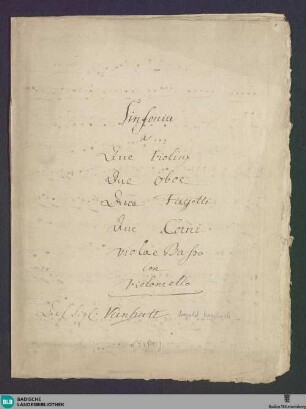 Sinfonia
a
Due Violini
Due Oboe
Due Fagotti
Due Corni
Viola e Basso
con
Violoncello
Del Sig:
BLB BADISCHE
LANDESBIBLIOTHEK
Baden-Württemberg